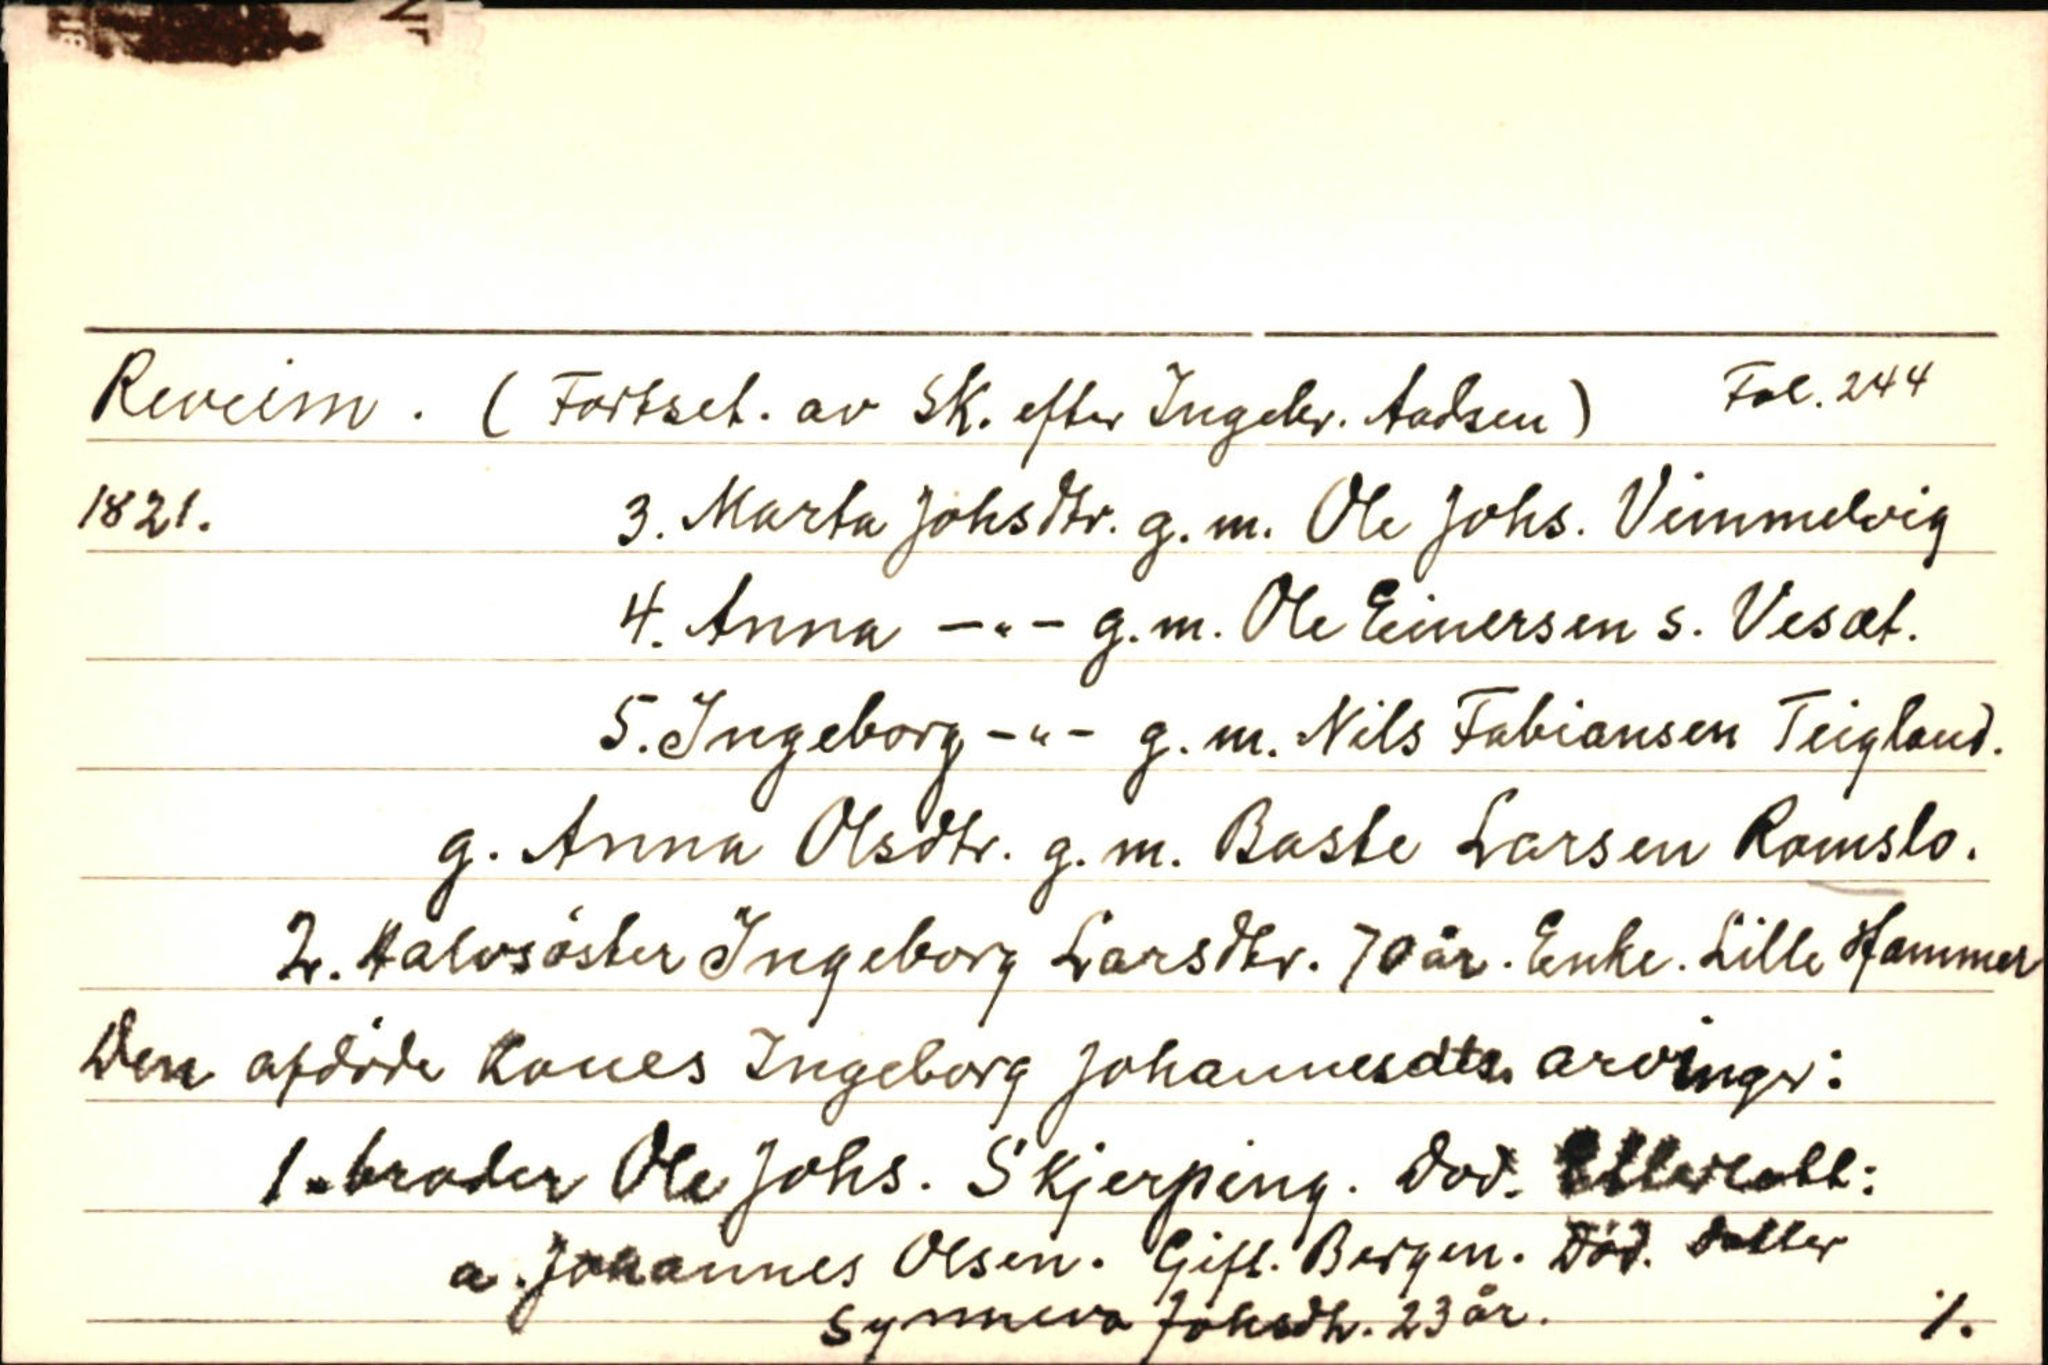 Reveim. (Fortset. av Sk. efter Ingebr. Aadsen) Fol. 244
1821. 3. Marta Johsdtr. g. m. Ole Johs. Vimmelvig
4. Anna -"- g. m. Ole Einersen s. Vesæt.
5. Ingeborg -"- g. m. Nils Fabiansen Teigland.
g. Anna Olsdtr. g. m. Baste Larsen Romslo.
2. Halvsöster Ingeborg Larsdtr. 70 år. Enke. Lille Hammer
Den afdöde Kones Ingeborg Johannesdtr. arvinger:
1. broder Ole Johs. Skjerping. Död. Etterlatt:
a. Johannes Olsen. Gift. Bergen. Död. Datter
Synneva Johsdtr. 23 år. ./.